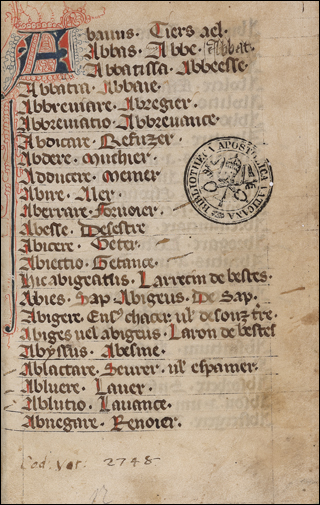 Abauus · Tiers ael ·
Abbas · Abbe · Abbat ·
Abbatissa · Abbeesse ·
Abbatia · Abbaie ·
Abbreuiare · Abregier ·
Abbreuiatio · Abbreuiance ·
Abdicare · Refuzer ·
Abdere · Muchier ·
Abducere · Mener ·
Abire · Aler ·
Aberrare · Foruoier ·
Abesse · Desestre
Abicere · Geter ·
Abiectio · Getance ·
Hic abigeatus · Larrecin de bestes ·
Abies · Sap · Abigeus · De Sap ·
Abigere · chacer ul' desouz tre ·
Abiges uel abigeus · Laron de bestes
Abyssus · Abesme ·
Ablactare · Seurer · ul' espaner ·
Abluere · Lauer ·
Ablutio · Lauance ·
Abnegare · Renoier ·
BIBLIOTHECA APOSTOLICA VATICANA
Cod. Vat: 2748